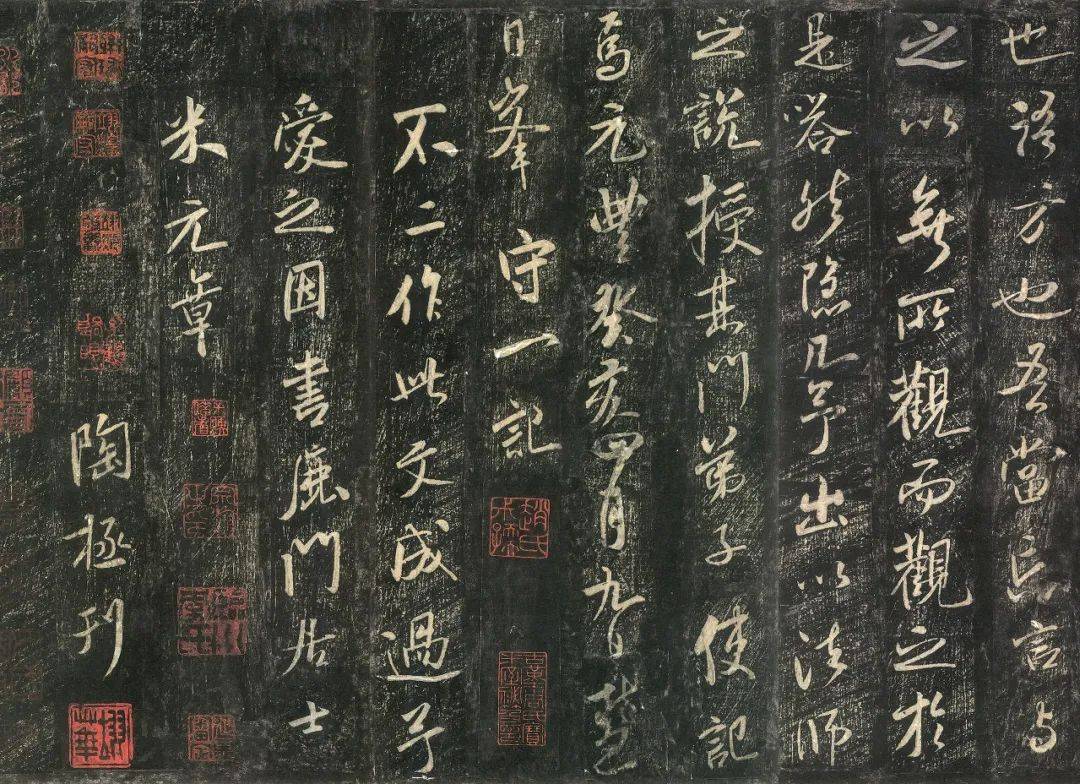 也語方也吾當忘言与
之以無所觀而觀之於
是嗒然隱几予出以法師
之說授其門弟子使記
焉元豐癸亥四月九日慧
日峯守一記
不二作此文成過予
愛之因書鹿門居士
米元章
陶拯刊